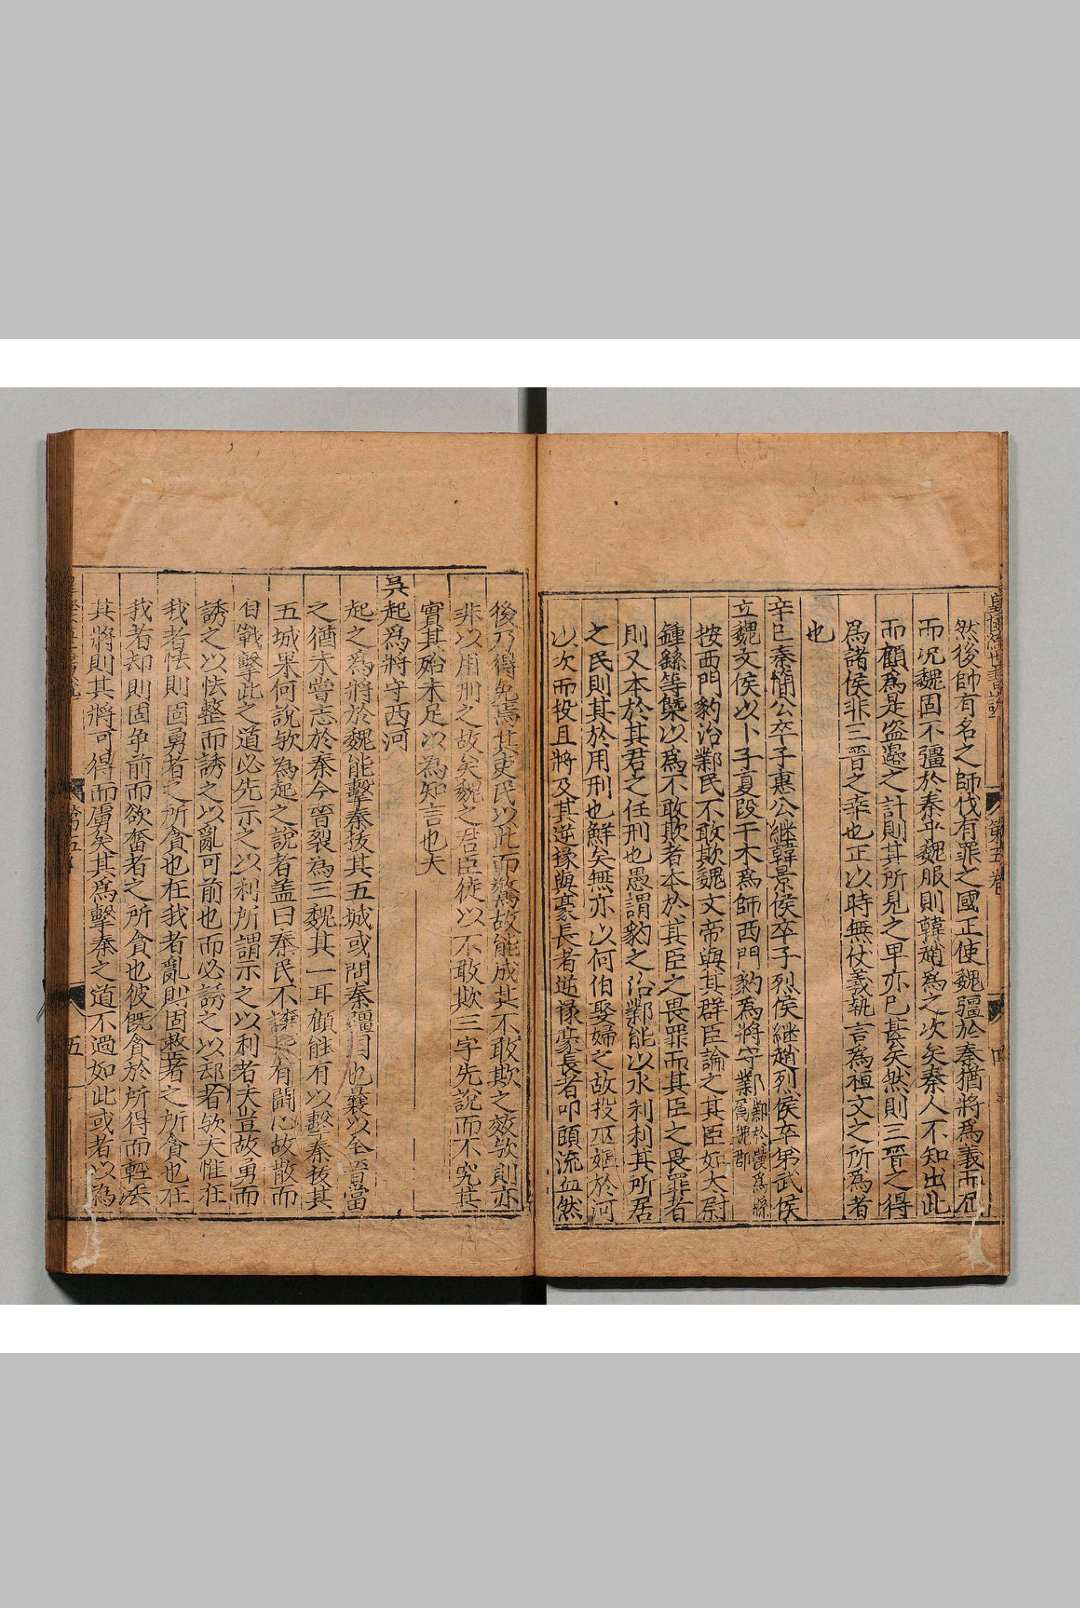 然後帥有名之師伐有罪之國正使魏彊於秦猶將爲義而屈
而况魏固不彊於秦乎魏服則韓趙爲之次矣秦人不知出此
而顧爲是盗邊之計則其所見之卑亦已甚矣然則三晉之得
爲諸侯非三晉之幸也正以時無仗義執言爲桓文之所爲者
也
辛巳秦簡公卒子惠公繼韓景侯卒子烈侯繼趙烈侯卒弟武侯
立魏文侯以卜子夏段干木爲師西門豹爲將守鄴
按西門豹治鄴民不敢欺魏文帝與其群臣論之其臣如太尉
鍾繇等槩以爲不敢欺者本於其臣之畏罪而其臣之畏罪者
則又本於其君之任刑也愚謂豹之治鄴能以水利利其所居
之民則其於用刑也鮮矣無亦以何伯娶婦之故投巫嫗於河
以次而投且將及其廷掾與豪長者廷掾豪長者叩頭流血然
後乃得免焉其吏民以此而驚故能成其不敢欺之效歟則亦
非以用刑之故矣魏之君臣徒以不敢欺三字先說而不究其
實其殆未足以為知言也夫
吳起為將守西河
起之為將於魏能擊秦拔其五城或問秦彊國也曩以全晉當
之猶未嘗志於秦今晉裂為三魏其一耳顧能有以擊秦拔其
五城果何說歟為起之說者盖曰秦民不讓皆有鬪心故散而
自戰擊此之道必先示之以利所謂示之以利者夫豈故勇而
誘之以怯整而誘之以亂可前也而必誘之以却者歟夫惟在
我者怯則固勇者之所貪也在我者亂則固整者之所貪也在
我者却則固争前而欲奮者之所貪也彼旣貪於所得而輕去
其將則其將可得而虜矣其爲擊秦之道不過如此或者以為
第五卷
四
五